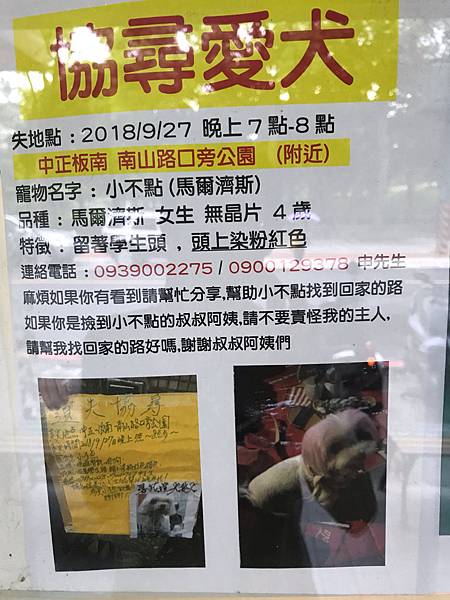 協尋愛犬
失地點：2018/9/27 晚上7點-8點
中正板南 南山路口旁公園 （附近）
寵物名字：小不點(馬爾濟斯)
品種：馬爾濟斯 女生 無晶片 4歲
特徵：留著學生頭，頭上染粉紅色
連絡電話：0939002275/0900129378 申先生
麻煩如果你有看到請幫忙分享,幫助小不點找到回家的路
如果你是撿到小不點的叔叔阿姨,請不要責怪我的主人,
請幫我找回家的路好嗎,謝謝叔叔阿姨們
失協尋
南山路口旁公園